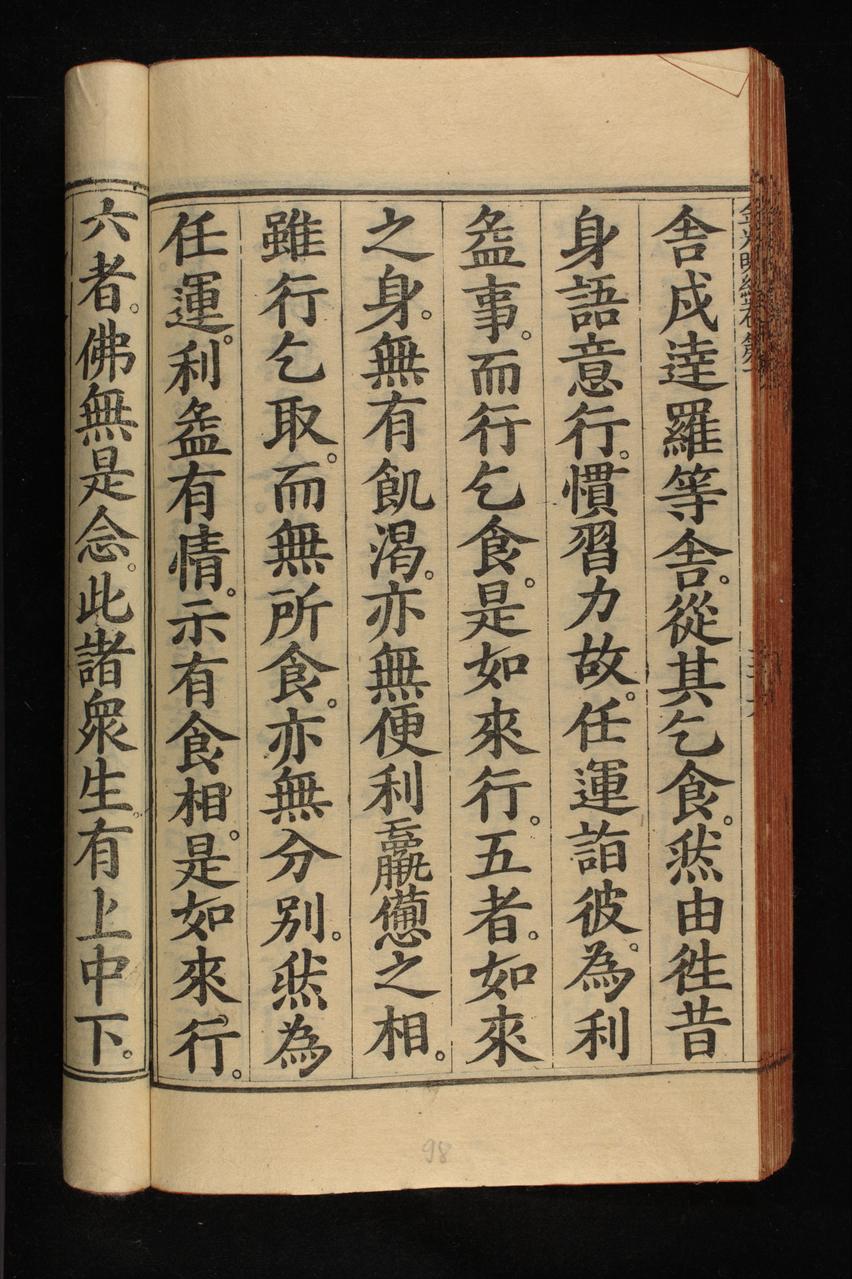 舍戍達羅等舍。從其乞食。然由徃昔
身語意行。慣習力故。任運詣彼。為利
益事。而行乞食。是如來行。五者。如來
之身。無有飢渴。亦無便利羸憊之相。
雖行乞取。而無所食。亦無分別。然為
任運。利益有情。示有食相。是如來行。
六者。佛無是念。此諸眾生。有上中下。
98